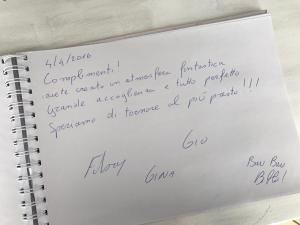 4/4/2016
Complimenti!
avete creato un atmosfera fantastica
Grande accoglienza e tutto perfetto
Speriamo di tornare al più presto!!!
Gio
GINA